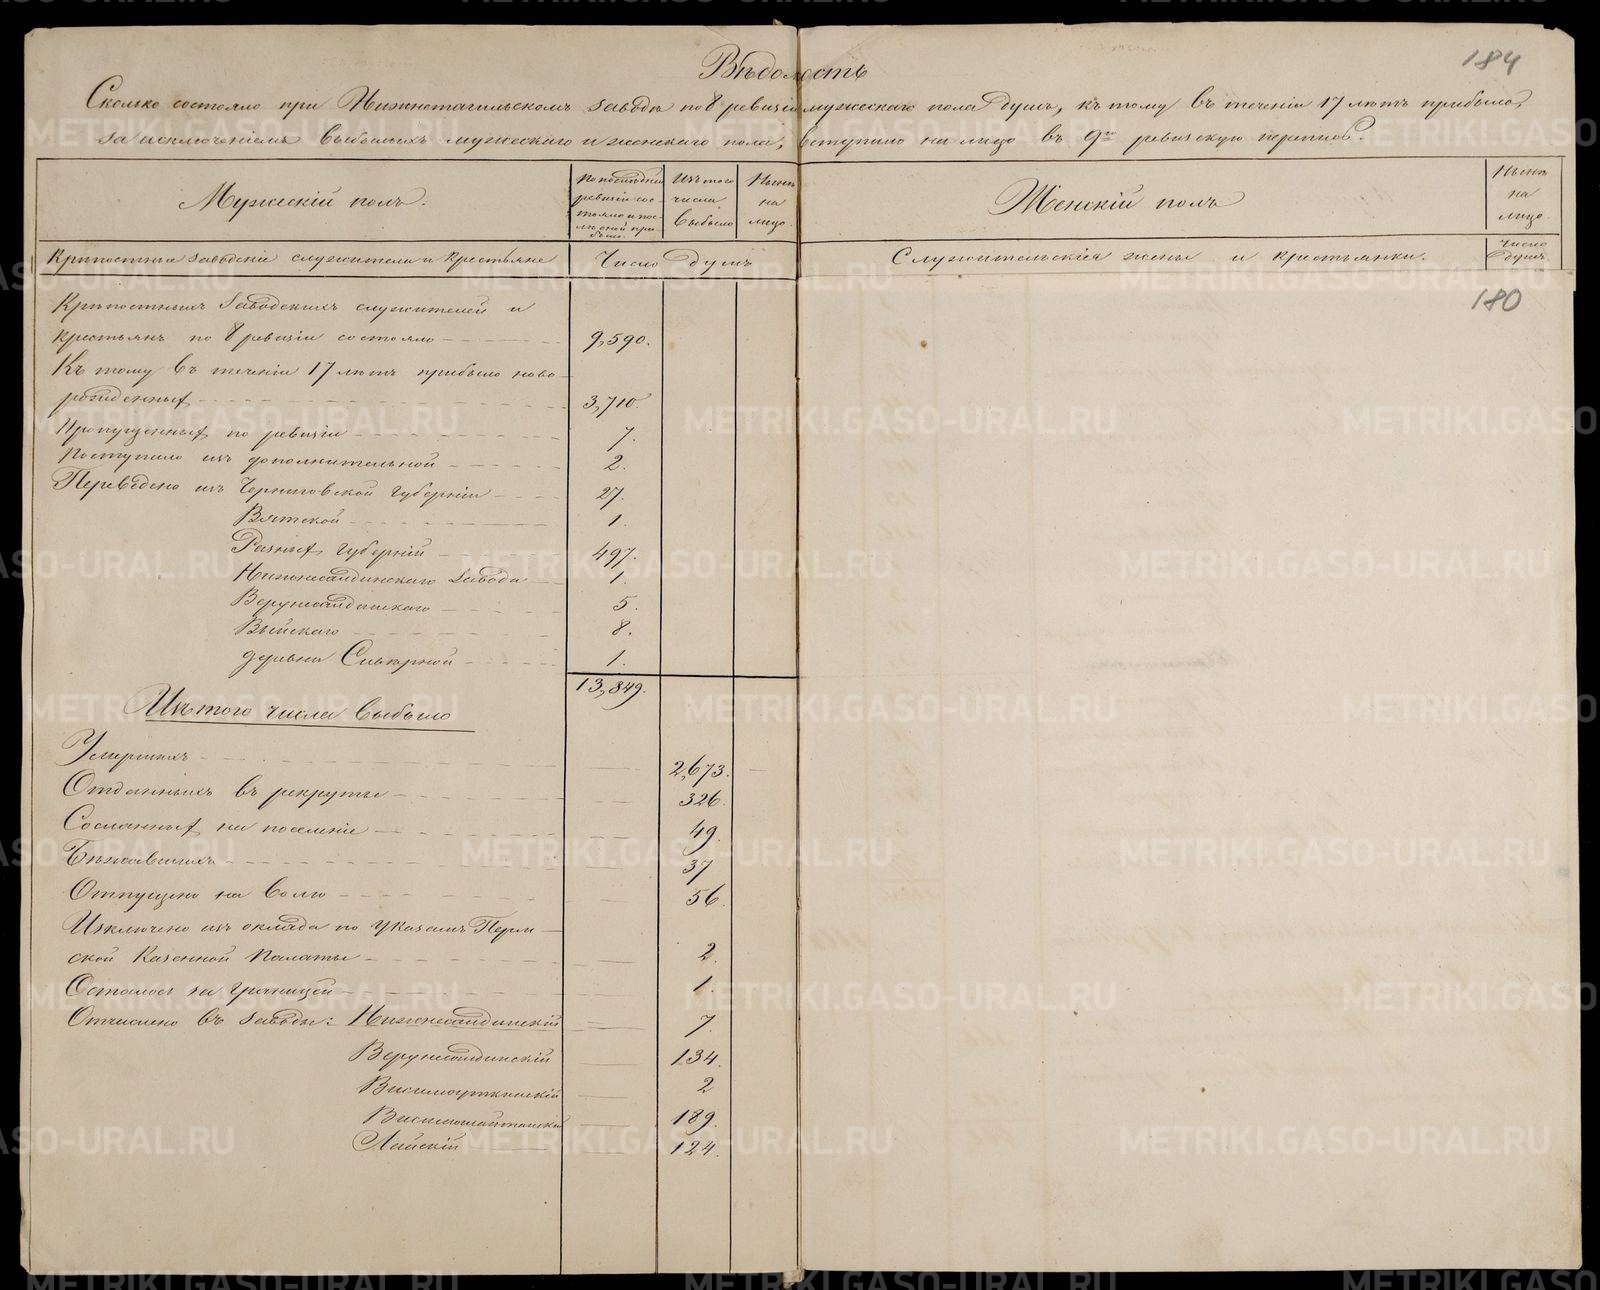 184
Вѣдомость
Сколько состояло при Нижнетагильскомъ заводѣ по 8 ревизіи мужескаго пола душъ, къ тому въ теченіи 17 лѣтъ прибыло,
за исключеніемъ выбылыхъ мужескаго и женскаго пола, вступило на лицо въ 9ю ревизскую перепись.
Мужескій полъ.
По последней ревизіи состояло и после оной прибыло.
Изъ того числа выбыло
Нынѣ на лицо.
Женскій полъ
Нынѣ на лицо.
Крѣпостные заводскіе служители и крестьяне
Число душъ
Служительскія жены и крестьянки.
Число душъ.
180
Крѣпостныхъ заводскихъ служителей и
крестьянъ по 8 ревизіи состояло 9,590.
Къ тому въ теченіи 17 лѣтъ прибыло ново-
рожденныхъ 3,710.
Пропущенныхъ по ревизіи 7.
Поступило изъ дополнительной 2.
Переведено изъ Черниговской губерніи 27.
Вятской 1.
Разныхъ губерній 497.
Нижнесалдинскаго завода 1.
Верхнесалдинскаго 5.
Выйскаго 8.
деревни Сѣверной 1.
13,849.
Изъ того числа выбыло
Умершихъ 2,673.
Отданныхъ въ рекруты 326.
Сосланныхъ на поселеніе 49.
Бѣжавшихъ 37
Отпущено на волю 56.
Изключено изъ оклада по указамъ Перм-
ской Казенной Палаты 2.
Осталось за границей 1.
Отчислено въ заводы: Нижнесалдинскій 7.
Верхнесалдинскій 134.
Висимоуткинскій 2
Висимошайтанскій 189.
Лайскій 124.
METRIKI.GASO-URAL.RU